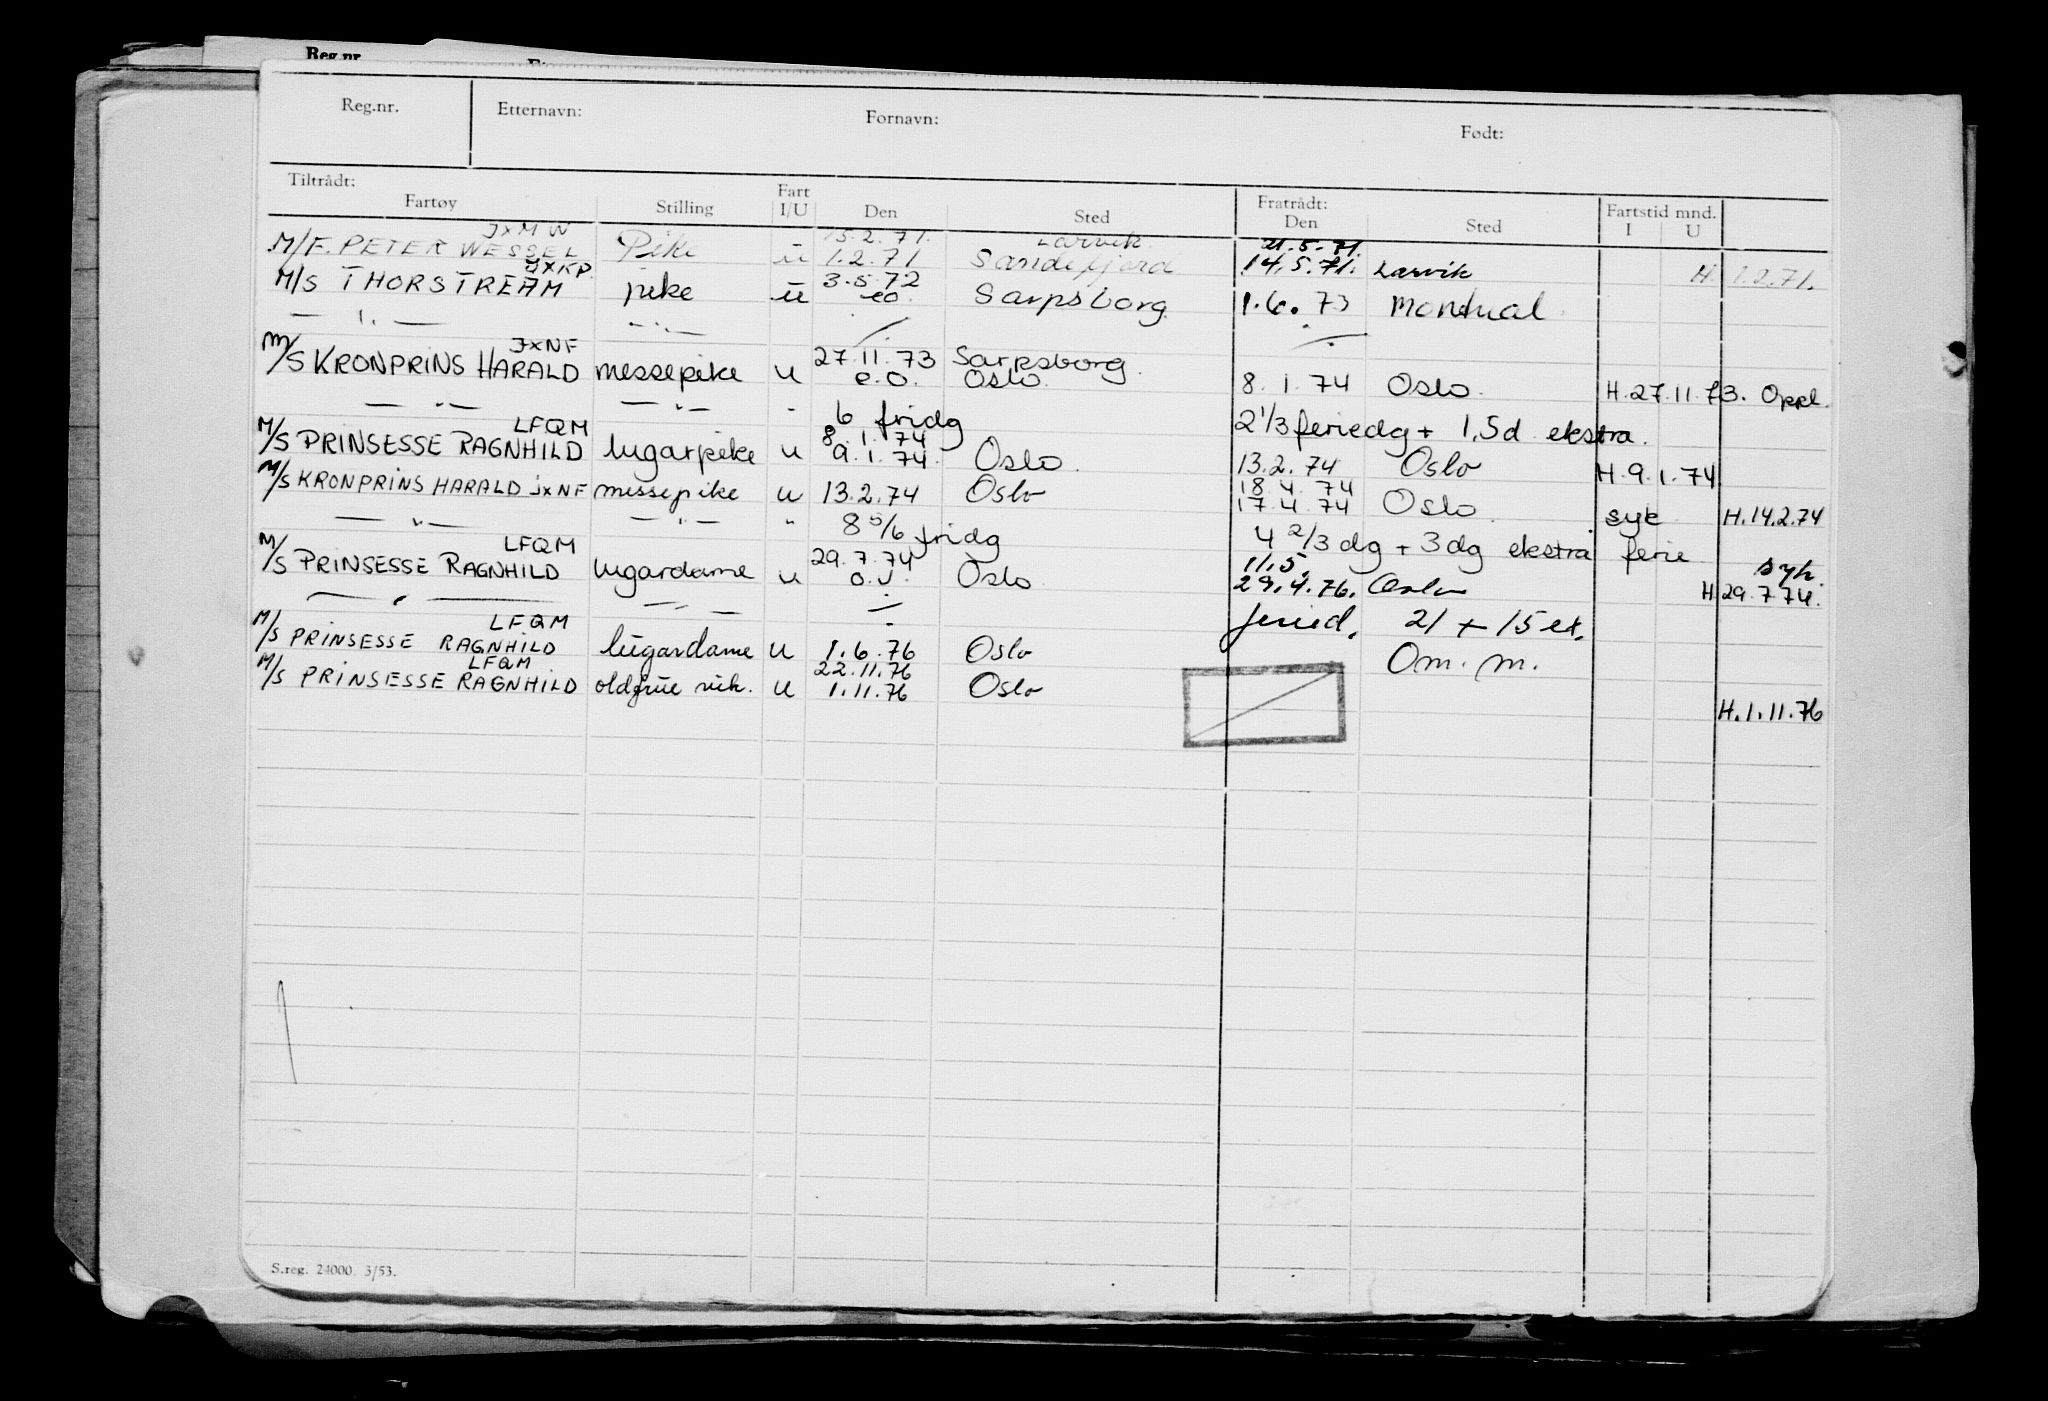 Reg.nr.
Reg.nr. Etternavn: Fornavn: Født:
Tiltrådt: Fratrådt:
Fartøy Stilling Fart I/U Den Sted Den Sted Fartstid mnd. I U
JXMW 15.2.71. Larvik. 21.5.71.
M/F. PETER WESSEL Pike u 1.2.71 Sandefjord 14.5.71. Larvik H. 1.2.71.
JXKP 3.5.72
M/S THORSTREAM pike u eo. Sarpsborg 1.6.73 Montreal
JXNF 27.11.73 Sarpsborg.
M/S KRONPRINS HARALD messepike u e.o. Oslo. 8.1.74 Oslo. H.27.11.73. Oppl.
— " — — " — " 6 fridg 2 1/3 feriedg + 1,5d ekstra.
LFQM 8.1.74
M/S PRINSESSE RAGNHILD lugarpike u 9.1.74. Oslo. 13.2.74 Oslo H.9.1.74
18.4.74
M/S KRONPRINS HARALD JXNF messepike u 13.2.74 Oslo 17.4.74 Oslo. syk H.14.2.74
— " — — " — " 8 5/6 fridg 4 2/3 dg + 3 dg ekstra ferie
LFQM 29.7.74 11.5. syk.
M/S PRINSESSE RAGNHILD lugardame u o.v. Oslo 29.4.76. Oslo H 29.7.74.
feried. 21 + 15 ex.
LFQM
M/S PRINSESSE RAGNHILD lugardame u 1.6.76 Oslo Om. m.
LFQM 22.11.76
M/S PRINSESSE RAGNHILD oldfrue vik. u 1.11.76 Oslo H.1.11.76
S.reg. 24000. 3/53.